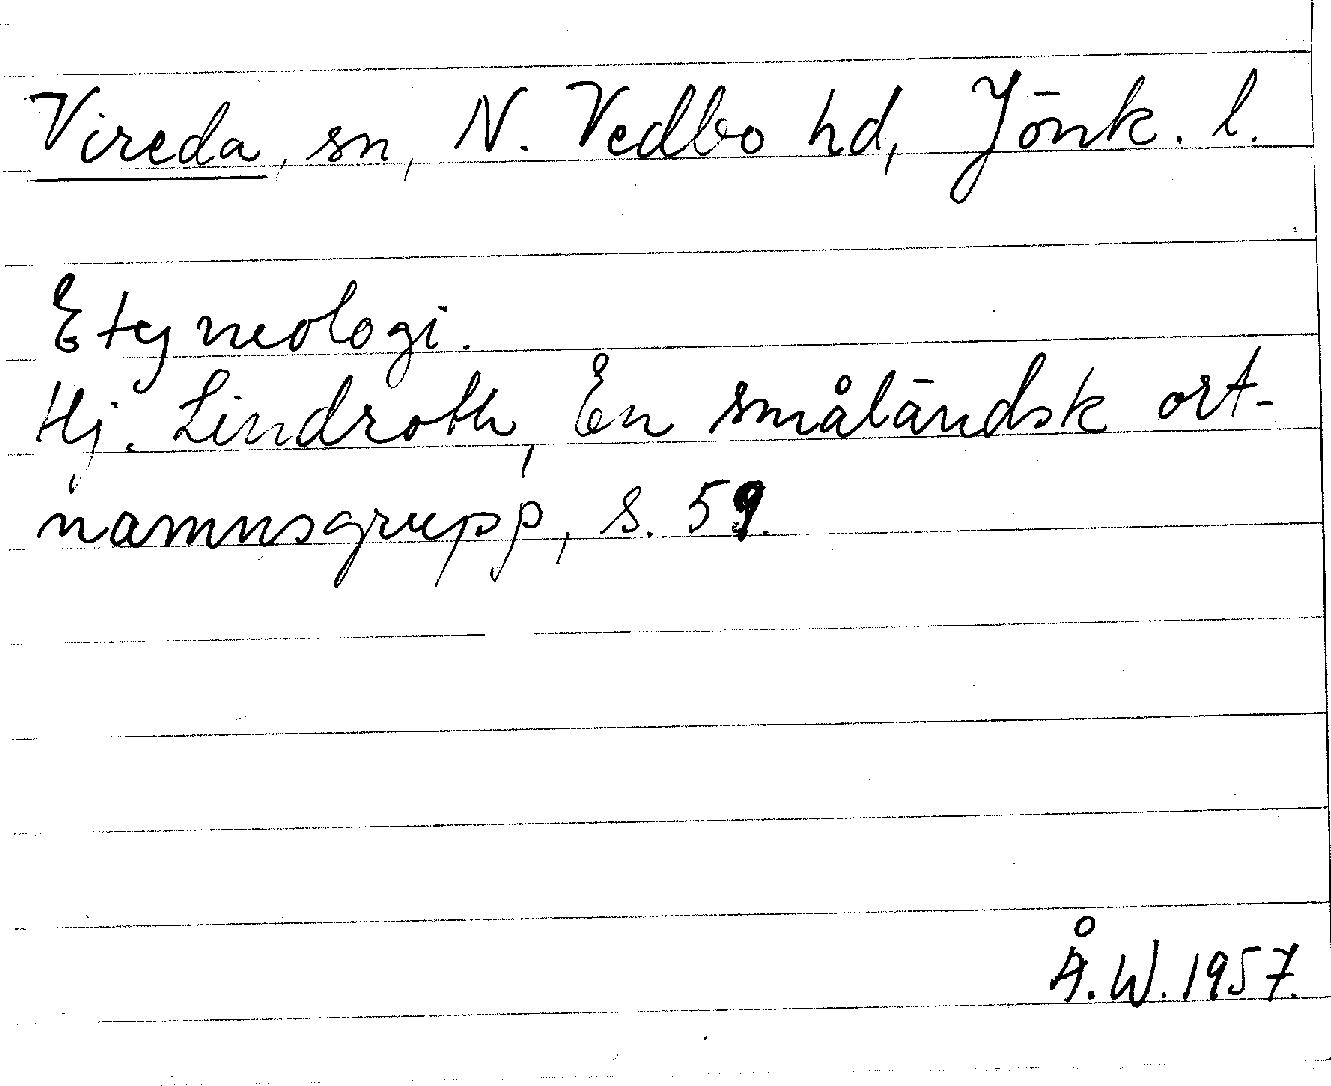 Vireda, sn, N. Vedbo hd, Jönk. l.
Etymologi.
Hj. Lindroth, En småländsk ort-
namnsgrupp, s. 59.
Å.W. 1957.